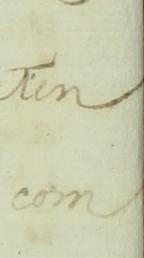 ten
com